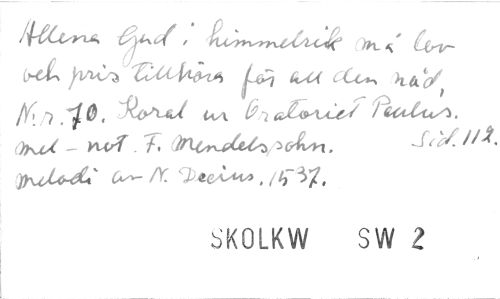 Allena Gud i himmelrik må lov
och pris tillhöra för all den nåd,
N:r. 70. Koral ur Oratoriet Paulus.
mel - not. F. Mendelspohn. Sid. 112.
melodi av N. Decius. 1537.
SKOLKW SW 2